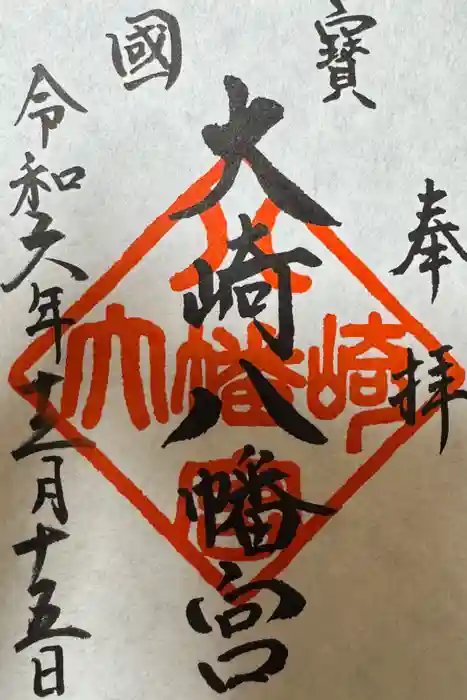 奉拝
寳國
大崎八幡宮
令和六年十二月十五日
八
大幡崎
宮